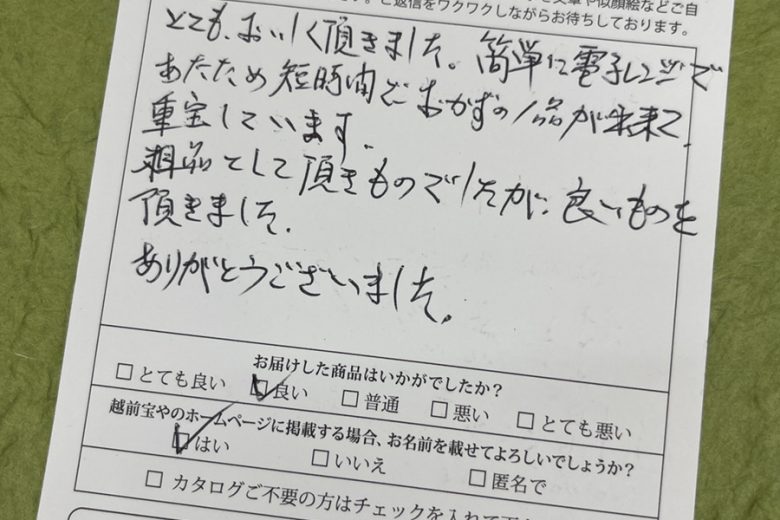 文章や似顔絵などご自
す。ご返信をワクワクしながらお待ちしております。
とても、おいしく頂きました。簡単に電子レンジで
あたため短時間でおかずの1品が出来て、
重宝しています。
粗品として頂きものでしたが、良いものを
頂きました。
ありがとうございました。
お届けした商品はいかがでしたか？
□とても良い ☑良い □普通 □悪い □とても悪い
越前宝やのホームページに掲載する場合、お名前を載せてよろしいでしょうか？
☑はい □いいえ □匿名で
□カタログご不要の方はチェックを入れて下